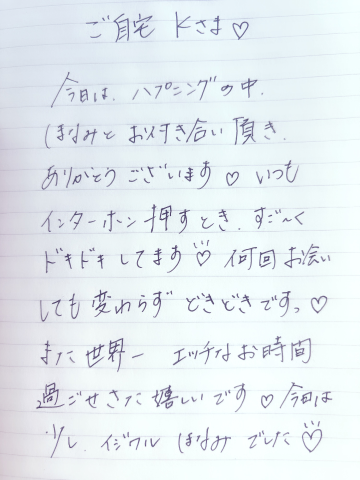 ご自宅 Kさま♡
今日は、ハプニングの中、
ほなみと お付き合い 頂き、
ありがとう ございます♡ いつも
インターホン 押す とき、すご〜く
ドキドキ してます♡ 何回 お会い
しても 変わらず どきどきですっ♡
また 世界一 エッチな お時間
過ごせきた 嬉しいです♡ 今日は
少し、イジワル ほなみ でした♡